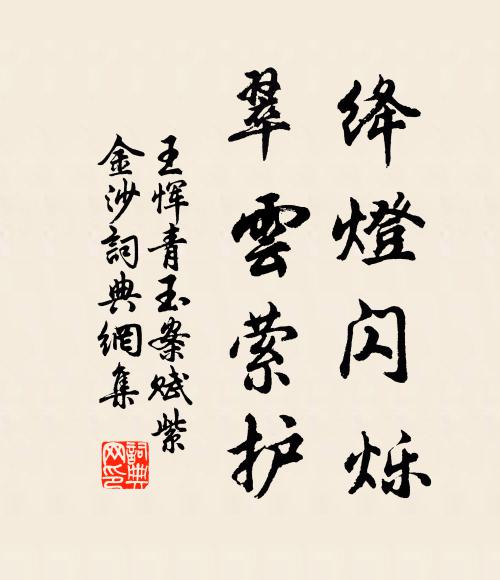 绛燈闪烁
翠雲萦护
王恽青玉案赋紫
金沙詞典網集
詞典
网印